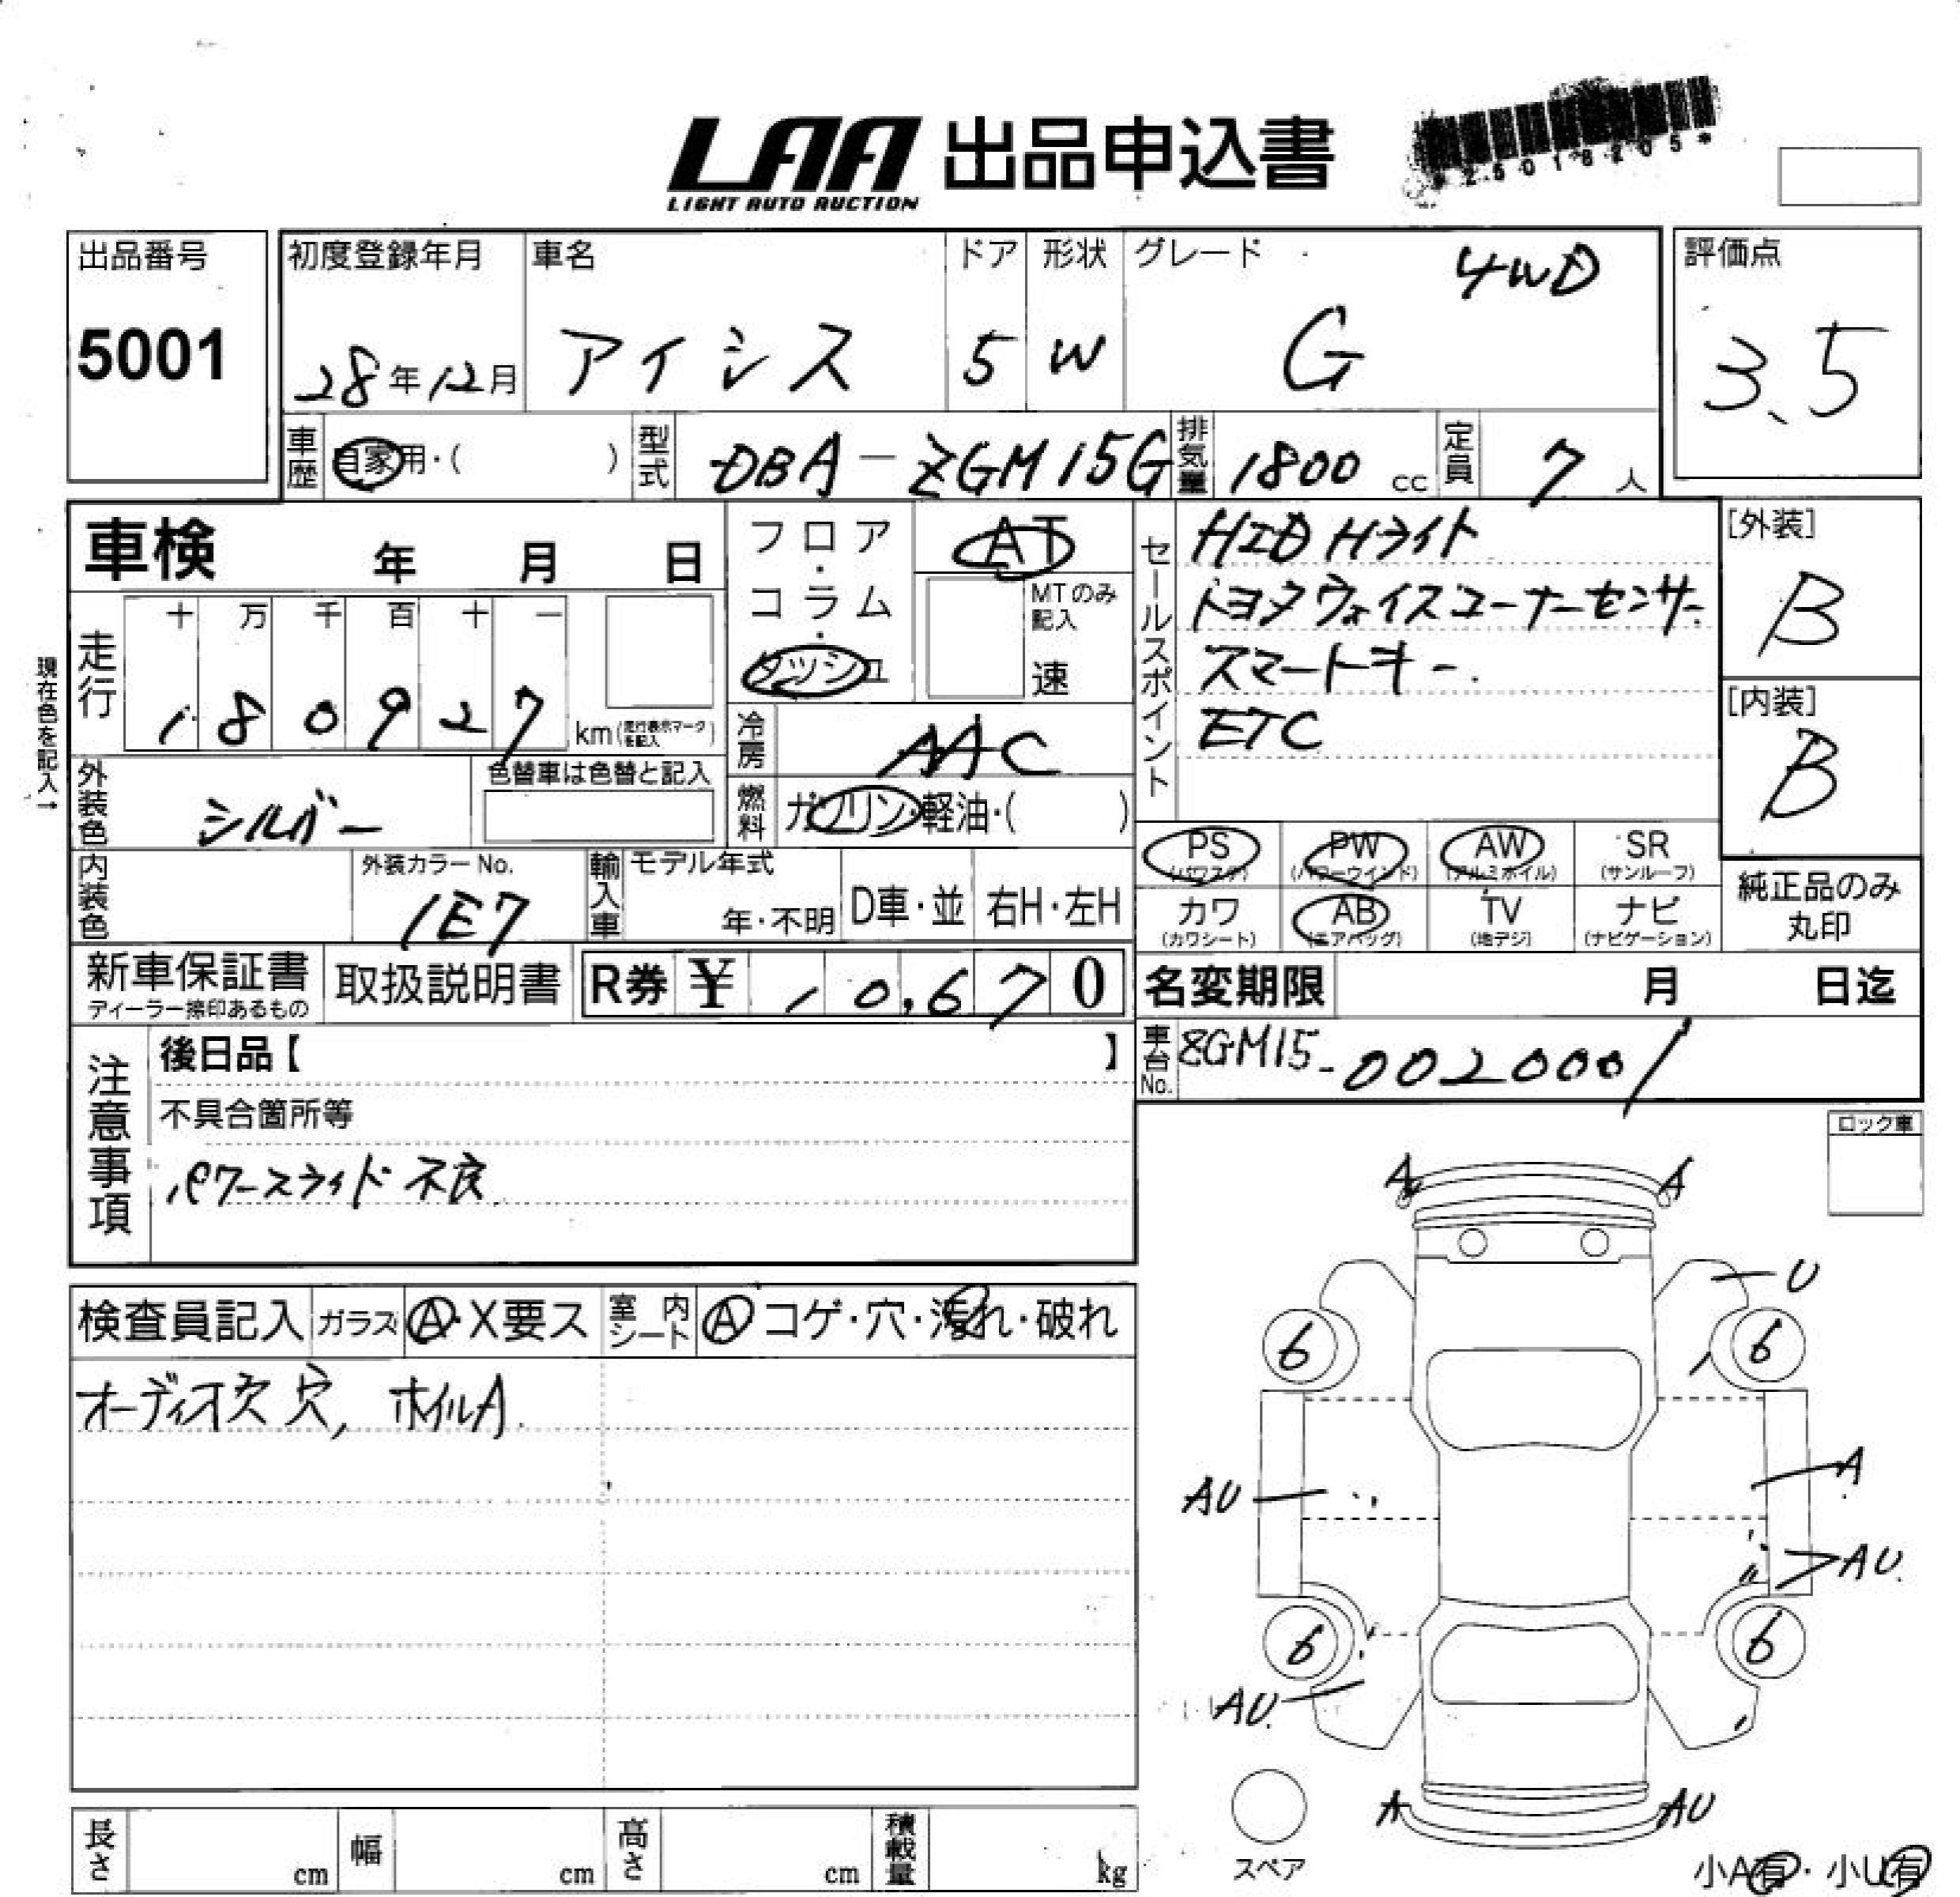 LAA 出品申込書
LIGHT AUTO AUCTION
*25018205*
出品番号
5001
初度登録年月
28年12月
車名
アイシス
ドア
5
形状
W
グレード
4WD
G
評価点
3.5
車歴
自家用・( )
型式
DBA-ZGM15G
排気量
1800 cc
定員
7人
車検 年 月 日
フロア・コラム・ダッシュ
AT
MTのみ記入
速
セールスポイント
HID Hライト
トヨタヴォイスコーナーセンサー
スマートキー
ETC
[外装]
B
[内装]
B
現在色を記入→
走行
十 万 千 百 十 一
180927
km(走行表示マークを記入)
冷房
AAC
燃料
ガソリン・軽油・( )
外装色
シルバー
色替車は色替と記入
内装色
外装カラーNo.
1E7
輸入車
モデル年式
年・不明
D車・並
右H・左H
PS (パワステ)
PW (パワーウインド)
AW (アルミホイル)
SR (サンルーフ)
カワ (カワシート)
AB (エアバッグ)
TV (地デジ)
ナビ (ナビゲーション)
純正品のみ丸印
新車保証書
ディーラー捺印あるもの
取扱説明書
R券 ¥ 10,670
名変期限 月 日迄
車台No.
ZGM15-0020001
注意事項
後日品【 】
不具合箇所等
パワースライド不良
ロック車
検査員記入
ガラス
A・X要ス
室内シート
A コゲ・穴・汚れ・破れ
オーディオ欠 穴, ホイルA.
A A
U
6 6
AU A
AU
6 6
AU
A AU
スペア
小A有・小U有
長さ cm
幅 cm
高さ cm
積載量 kg